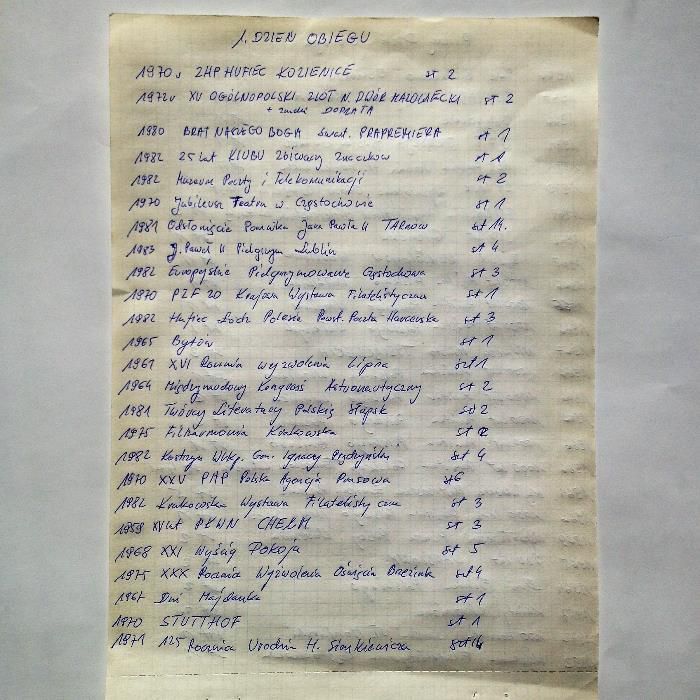 1. DZIEŃ OBIEGU
1970 r ZHP HUFIEC KOZIENICE szt 2
1972 r XV OGÓLNOPOLSKI ZLOT N. DWÓR MAZOWIECKI szt 2
+ znaczki DOPŁATA
1980 BRAT NASZEGO BOGA świat. PRAPREMIERA szt 1
1982 25 lat KLUBU Zbieraczy Znaczków szt 1
1982 Muzeum Poczty i Telekomunikacji szt 2
1970 Jubileusz Teatru w Częstochowie szt 1
1981 Odsłonięcie Pomnika Jana Pawła II TARNÓW szt 14.
1983 J. Paweł II Pielgrzym Lublin szt 4
1982 Europejskie Pielgrzymowanie Częstochowa szt 3
1970 PZF 20 Krajowa Wystawa Filatelistyczna szt 1
1982 Hufiec Łódź Polesie Powst. Poczta Harcerska szt 3
1965 Bytów szt 1
1961 XVI Rocznica wyzwolenia Lipna szt 1
1964 Międzynarodowy Kongres Astronautyczny szt 2
1981 Twórcy Literatury Polskiej Słupsk szt 2
1975 Filharmonia Krakowska szt
1982 Kostrzyn Wlkp. Gen. Ignacy Prądzyński szt 4
1970 XXV PAP Polska Agencja Prasowa szt 6
1982 Krakowska Wystawa Filatelistyczna szt 3
1959 XV lat PKWN CHEŁM szt 3
1968 XXI Wyścig Pokoju szt 5
1975 XXX Rocznica Wyzwolenia Oświęcim Brzezinka szt 4
1967 Dni Majdanka szt 1
1970 STUTTHOF szt 1
1971 125 Rocznica Urodzin H. Sienkiewicza szt